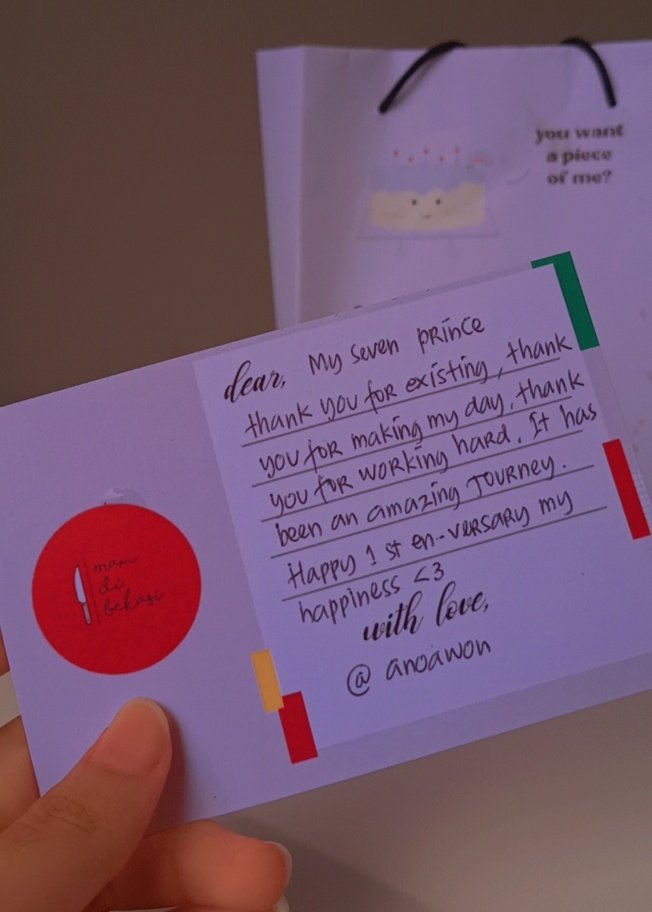 you want
a piece
of me?
dear, My seven prince
thank you for existing, thank
you for making my day, thank
you for working hard. It has
been an amazing journey.
Happy 1st en-versary my
happiness <3
with love,
@ anoawon
mam
di
bekasi